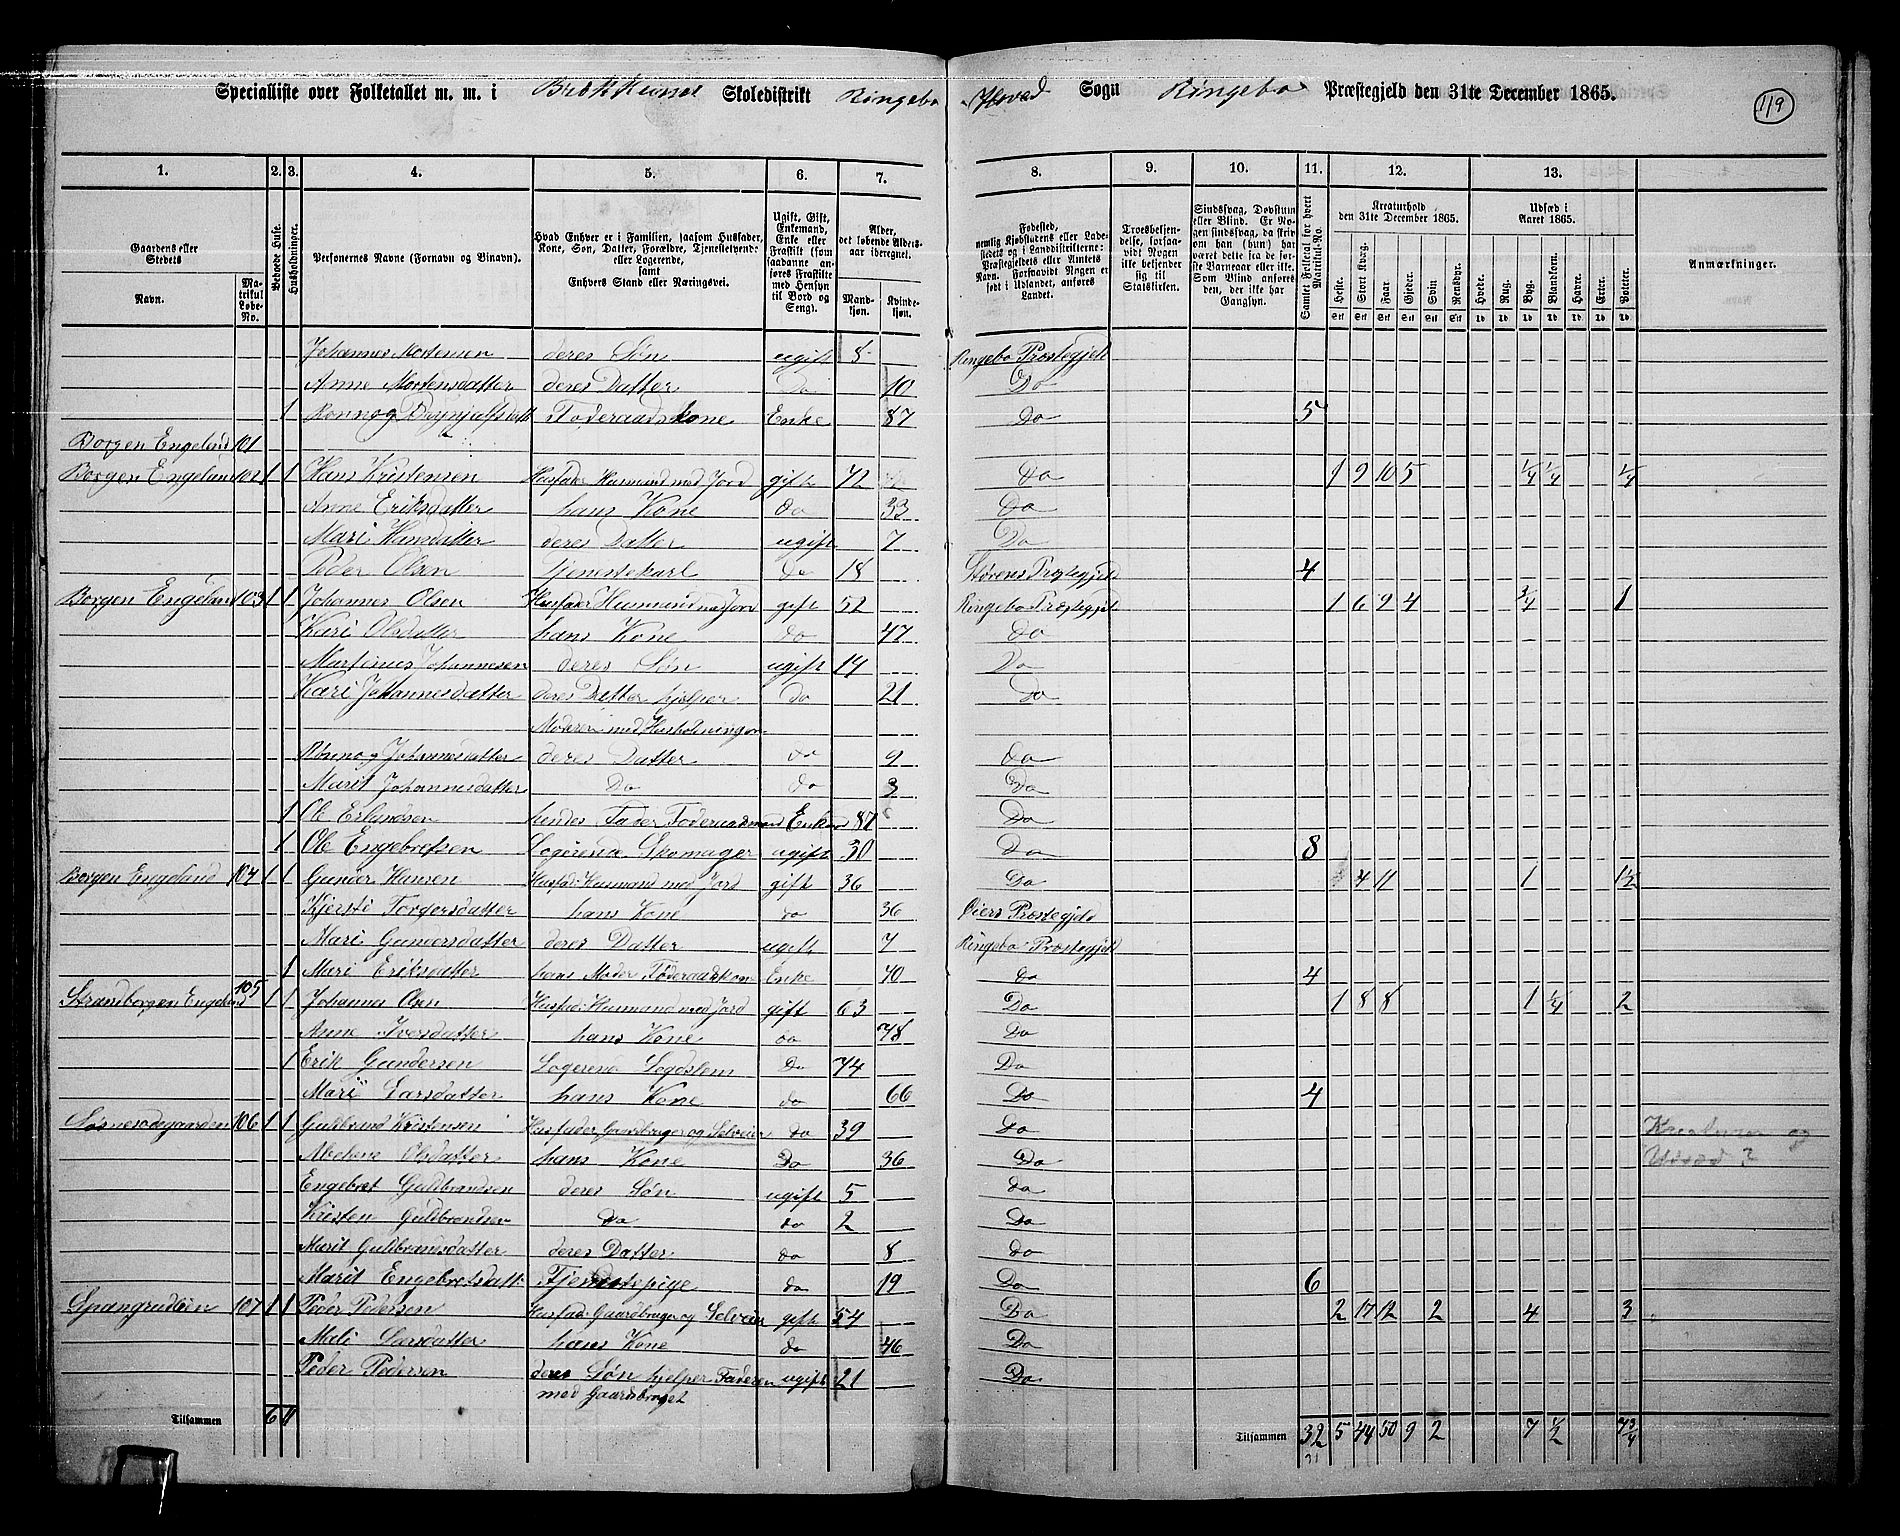 Specialliste over Folketallet m. m. i Skoledistrikt Ringebo Sogn Ringebo Præstegjeld den 31te December 1865.
119
1. 2. 3. 4. 5. 6. 7. 8. 9. 10. 11. 12. 13.
Gaardens eller Stedets Navn. Matrikul Løbe-No.
Beboede Huse.
Husholdninger.
Personernes Navne (Fornavn og Binavn).
Hvad Enhver er i Familien, saasom Husfader, Kone, Søn, Datter, Forældre, Tjenestetyende eller Logerende, samt Enhvers Stand eller Næringsvei.
Ugift, Gift, Enkemand, Enke eller Fraskilt (som saadanne anføres Fraskilte med Hensyn til Bord og Seng).
Alder, det løbende Alders-aar iberegnet. Mandkjøn. Kvindekjøn.
Fødested, nemlig Kjøbstadens eller Ladestedets og i Landdistrikterne: Præstegjeldets eller Amtets Navn. Forsaavidt Nogen er født i Udlandet, anføres Landet.
Troesbekjendelse, forsaavidt Nogen ikke bekjender sig til Statskirken.
Sindssvag, Døvstum eller Blind. Er Nogen sindssvag, da skrives om han (hun) har været det fra de første Barneaar eller ikke. Som Blind anføres den, der ikke har Gangsyn.
Samlet Folketal for hvert Matrikul-No.
Kreaturhold den 31te December 1865. Heste. Stort Kvæg. Faar. Gjeder. Svin. Rensdyr.
Udsæd i Aaret 1865. Hvede. Rug. Byg. Blandkorn. Havre. Erter. Poteter.
Anmærkninger.
Johannes Mortensen deres Søn ugift 8 Ringebo Præstegjeld
Anne Mortensdatter deres Datter Do 10 Do
1 Føderaadskone Enke 87 Do 5
Borgen Engeland 101
Borgen Engeland 102 1 1 Hans Kristensen Husfader Husmand med Jord gift 72 Do 1 9 10 5 1/4 1/4 1/4
Anne Eriksdatter hans Kone do 33 Do
Mari Hansdatter deres Datter ugift 7 Do
Peder Olsen Tjenestekarl Do 18 Størens Præstegjeld 4
Borgen Engeland 103 1 1 Johannes Olsen Husfader Husmand med Jord gift 52 Ringebo Præstegjeld 1 6 9 4 3/4 1
Kari Olsdatter hans Kone do 47 do
Martinus Johannesen deres Søn ugift 14 Do
Kari Johannesdatter deres Datter hjelper do 21 do
Moderen med Husholdningen
Rønnog Johannesdatter deres Datter do 9 do
Marit Johannesdatter Do do 3 Do
1 Ole Erlandsen hendes Fader Føderaadsmand Enkem 87 Do
1 Ole Engebretsen Logerende Skomager ugift 30 Do 8
Borgen Engeland 104 1 1 Gunder Hansen Husfad: Husmand med Jord gift 36 Do 4 11 1 1 1/2
Kjersti Torgersdatter hans Kone do 36 Øiers Præstegjeld
Mari Gundersdatter deres Datter ugift 7 Ringebo Præstegjeld
1 Mari Eriksdatter hans Moder Føderaadskone Enke 70 do 4
Strandborgen Engeland 105 1 1 Johannes Olsen Husfad: Husmand med Jord gift 63 Do 1 8 8 1 1/4 2
Anne Iversdatter hans Kone do 78 Do
1 Erik Gundersen Logerend Legdslem Do 74 Do
Mari Larsdatter hans Kone do 66 Do 4
106 1 1 Guldbrand Kristensen Husfader Gaardbruger og Selveier do 39 Do
Olsdatter hans Kone Do 36 Do Udsæd ?
Engebret Guldbrandsen deres Søn ugift 5 do
Kristen Guldbrandsen do do 2 Do
Marit Guldbrandsdatter deres Datter do 8 do
Marit Engebretsdatt: Tjenestepige do 19 Do 6
107 1 1 Peder Pedersen Husfad: Gaardbruger og Selveier gift 54 Do 2 17 12 2 4 3
Larsdatter hans Kone do 46 Do
Peder Pedersen deres Søn hjelper Faderen ugift 21 Do
med Gaardsbruget
Tilsammen 6 11 Tilsammen 32 5 44 50 9 2 7 1/2 7 3/4